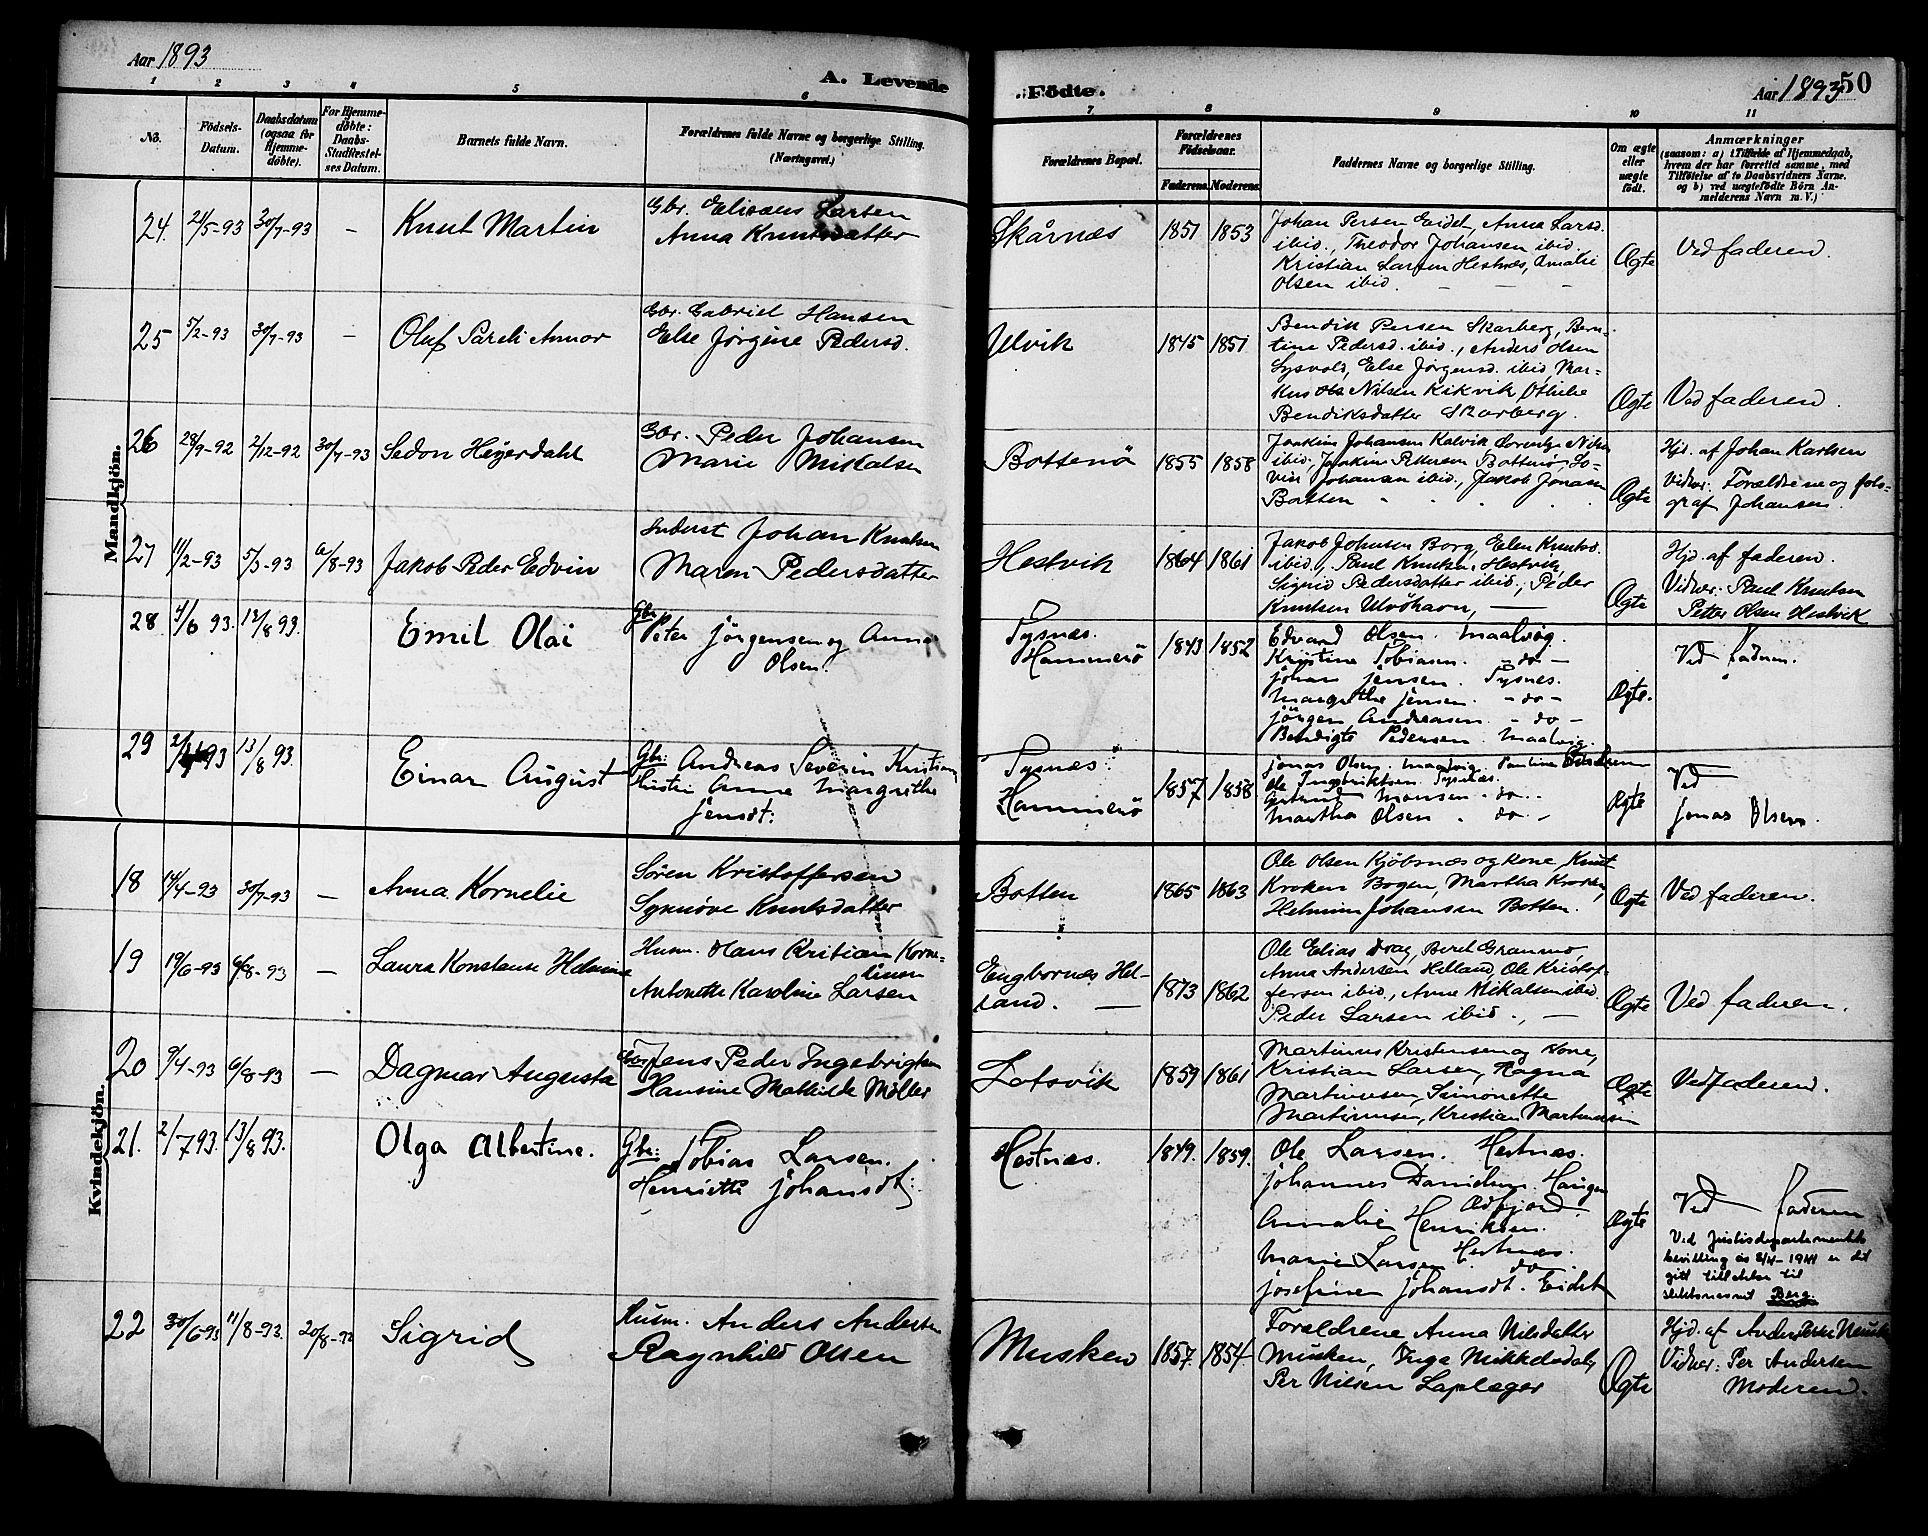 Aar 1893
A. Levende
Födte.
Aar 1893
50
1 2 3 4 5 6 7 8 9 10 11
No.
Födsels-Datum.
Daabsdatum (ogsaa for Hjemme-döbte).
For Hjemme-döbte: Daabs-Stadfæstel-ses Datum.
Barnets fulde Navn.
Forældrenes fulde Navne og borgerlige Stilling.
(Næringsvei.)
Forældrenes Bopæl.
Forældrenes Födselsaar.
Faderens. Moderens.
Faddernes Navne og borgerlige Stilling.
Om ægte eller uægte födt.
Anmærkninger
(saasom: a) i Tilfælde af Hjemmedaab,
hvem der har forrettet samme, med
Tilföielse af to Daabsvidners Navne.
og b) ved uægtefödte Börn An-
melderens Navn m. V.)
Mandkjön.
24. 21/5-93 30/7-93 -
Knut Martin
Gbr. Elisæus Larsen
Anna Knutsdatter
Skårnæs
1851 1853
Johan Persen Eidet, Anna Larsd.
ibid., Theodor Johansen ibid.
Kristian Larsen Hestnæs, Amalie
Olsen ibid. - - -
Ægte
Ved faderen.
25 5/2-93 30/7-93 -
Oluf Pareli Annor
Gbr. Gabriel Hansen
Else Jørgine Pedersd.
Ulvik
1845 1851
Bendik Persen Skarberg, Ben-
tine Pedersd. ibid., Anders Olsen
Sysvold, Else Jørgensd. ibid, Mar-
kus Nilsen Kikvik Othilie
Bendiksdatter Skarberg.
Ægte
Ved faderen.
26 28/9-92 2/12-92 30/7-93
Sedon Heyerdahl
Gbr. Peder Johansen
Marie Mikalsen
Bottenø
1855 1858
Joakim Johansen Kalvik
ibid., Joakim Pettersen Bottenø, Lo-
vise Johansen ibid., Jakob Jonasen
Botten
Ægte
Hjd. af Johan Karlsen
Vidner: Forældrene og foto-
graf Johansen.
27 11/2-93 5/3-93 6/8-93
Jakob Peder Edvin
Inderst Johan Knutsen
Maren Pedersdatter
Hestvik
1864 1861
Jakob Johnsen Borg, Elen Knutsd.
ibid., Paul Knutsen Hestvik,
Sigrid Pedersdatter ibid., Peder
Knutsen Ulvöhavn, -
Ægte
Hjd. af faderen.
Vidner: Paul Knutsen
Petter Olsen Hestvik
28. 4/6 93. 13/8 93.
Emil Olai
Gbr Peter Jörgensen og Anna
Olsen.
Tysnæs.
Hammerö
1843 1852
Edvard Olsen. Maalvög.
Kristine Tobiasen. - do -
Johan Jensen. Tysnes.
Margrethe Jensen. - do -
Jörgen Andreasen - do -
Bendigte Pedersen. Maalvig.
Ægte.
Ved faderen.
29 93 13/8 93.
Einar August
Gbr: Andreas Severin Kristian
Kristin Anne Margrethe
Jensdt:
Tysnæs.
Hammerö
1857 1858
Jonas Olsen. Maalvig. Pauline
Ole Ingebriktsen Tysnæs.
Gertrud Monsen - do -
Martha Olsen - do -
Ægte
Ved
Jonas Olsen.
Kvindekjön.
18 14/4-93 30/7-93 -
Anna Kornelie
Sören Kristoffersen
Synnöve Knutsdatter
Botten
1865 1863
Ole Olsen Kjöbsnæs og kone, Knut
Kroken Bogen, Martha Kroken,
Helmine Johansen Botten.
Ægte
Ved faderen.
19 19/6-93 6/8-93 -
Laura Konstanse Helmine
Husm. Hans Kristian Korne-
liusen
Antonette Karoline Larsen
Engbornæs Hel-
land. -
1873 1862
Ole Elias Drag, Beret Grannæs,
Anna Andersen Helland, Ole Kristof-
fersen ibid., Anne Mikalsen ibid.
Peder Larsen ibid., -
Ægte
Ved faderen.
20 9/4-93 6/8-93 -
Dagmar Augusta
Gbr Jens Peder Ingebrigtsen
Hansine Mathilde Möller
Lotsvik
1859 1861
Martinus Kristensen og kone,
Kristian Larsen, Ragna
Martinusen, Simonette
Martinusen, Kristian Martinusen
Ægte
Ved faderen.
21. 2/7 93. 13/8 93.
Olga Albertine.
Gbr: Tobias Larsen.
Henriette Johansdt:
Hestnæs.
1849. 1859.
Ole Larsen. Hestnæs.
Johannes Danielsen. Haugen
Odfjord.
Annalie Henriksen.
Marie Larsen. Hestnæs.
do
Josefine Johansdt. Eidet
Ægte
Ved faderen
Ved Justisdepartementets
bevilling av 2/4-1941 er det
gitt tillatelse til
slektsnavnet Berg.
22 30/6 93 11/8-93. 20/8-93
Sigrid
Husm. Anders Andersen
Ragnhild Olsen
Musken
1857. 1854
Forældrene Anna Nilsdatter
Musken, Inga Mikkelsdatter
Per Nilsen Laplæger
Ægte
Hjd. af Anders
Vidner: Per Andersen
Moderen.